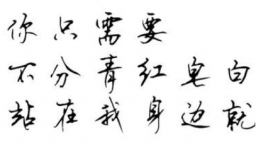 你只需要
不分青红皂白
站在我身边就